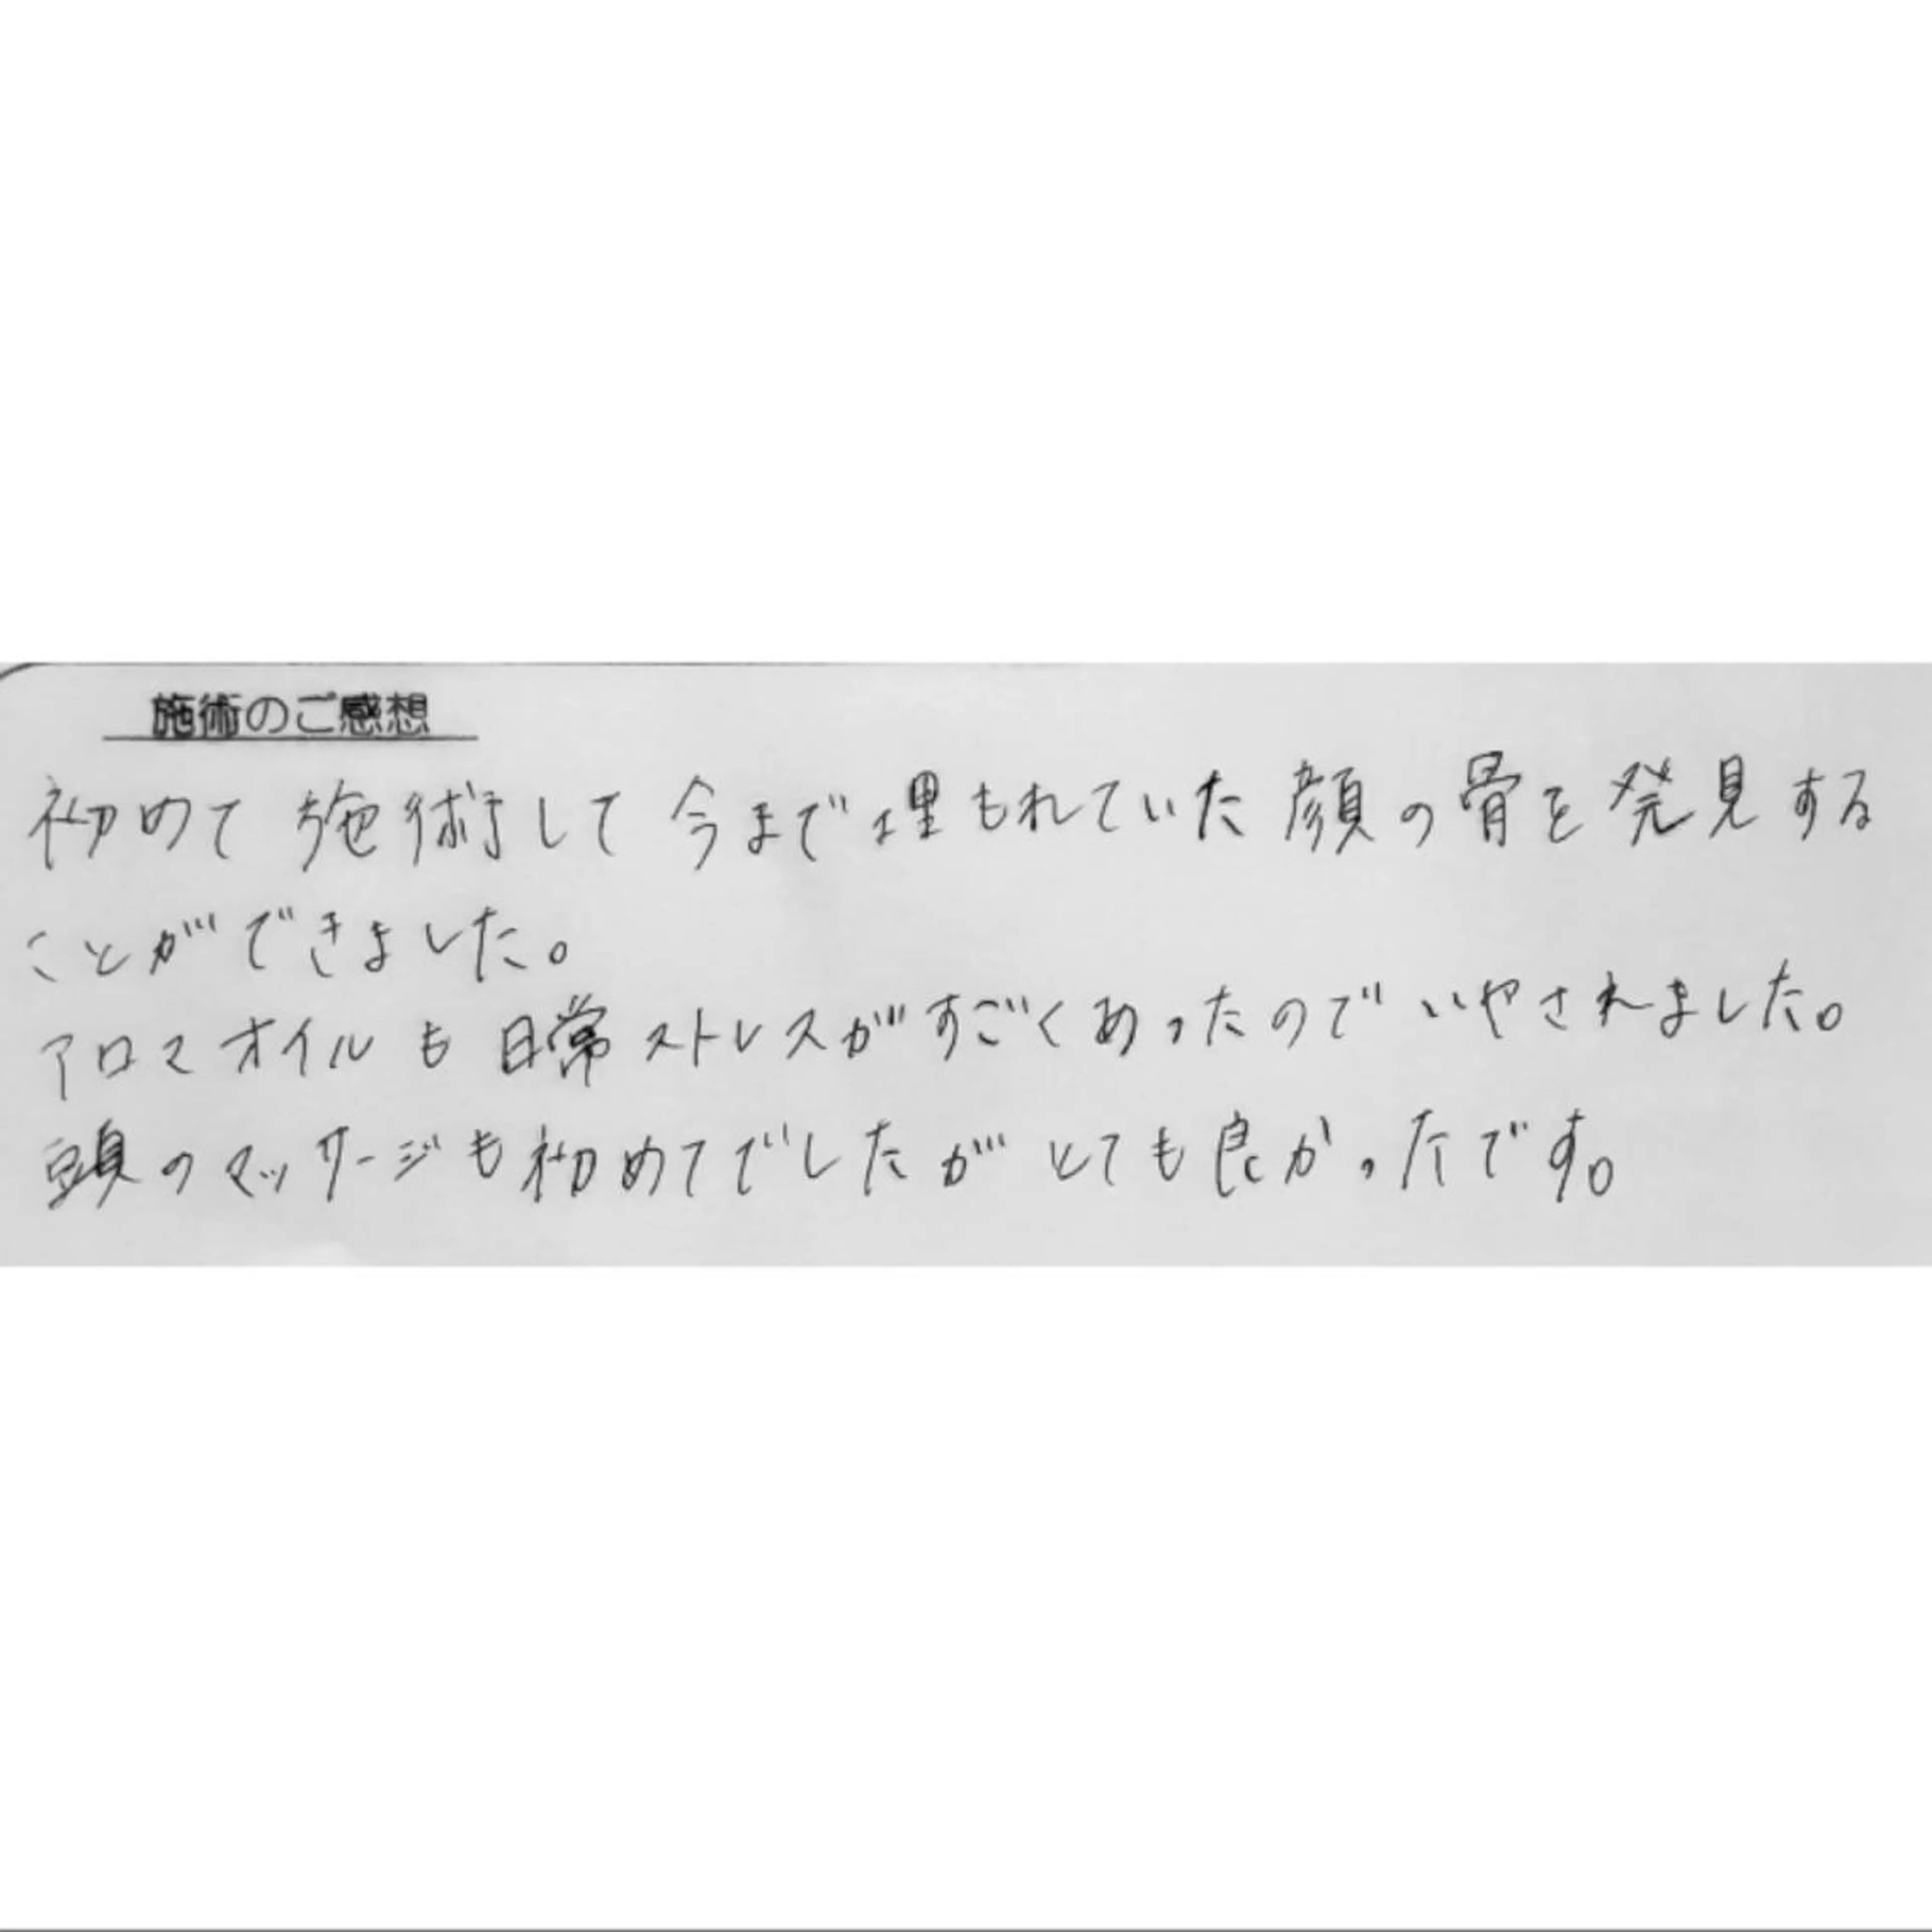 施術のご感想
初めて施術して今まで埋もれていた顔の骨を発見する
ことができました。
アロマオイルも日常ストレスがすごくあったのでいやされました。
頭のマッサージも初めてでしたがとても良かったです。